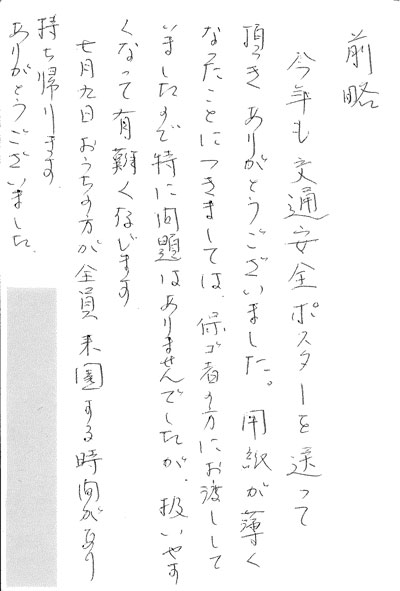 前略
今年も交通安全ポスターを送って
頂きありがとうございました。用紙が薄く
なったことにつきましては、保ゴ者の方にお渡しして
いましたので特に問題はありませんでしたが、扱いやす
くなって有難く存じます
七月九日おうちの方が全員来園する時間があり
持ち帰ります。
ありがとうございました。